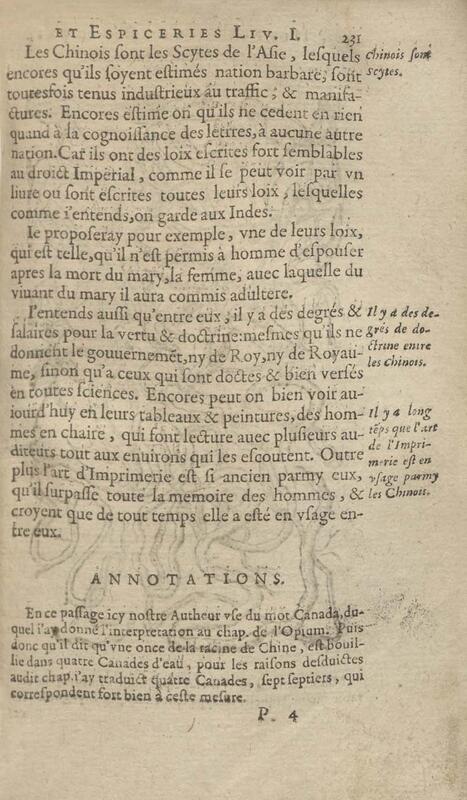 ET ESPICERIES LIV. I. 231
Les Chinois ſont les Scytes de l'Aſie, leſquels
encores qu'ils ſoyent eſtimés nation barbare, ſont
toutesfois tenus induſtrieux au traffic, & manifa-
ctures. Encores eſtime on qu'ils ne cedent en rien
quand à la cognoiſſance des lettres, à aucune autre
nation. Car ils ont des loix eſcrites fort ſemblables
au droict Imperial, comme il ſe peut voir par vn
liure ou ſont eſcrites toutes leurs loix, leſquelles
comme i'entends, on garde aux Indes.
Ie propoſeray pour exemple, vne de leurs loix,
qui eſt telle, qu'il n'eſt permis à homme d'eſpouſer
apres la mort du mary, la femme, auec laquelle du
viuant du mary il aura commis adultere.
I'entends auſſi qu'entre eux, il y a des degrés &
ſalaires pour la vertu & doctrine: meſmes qu'ils ne
donnent le gouuernemẽt, ny de Roy, ny de Royau-
me, ſinon qu'a ceux qui ſont doctes & bien verſés
en toutes ſciences. Encores peut on bien voir au-
iourd'huy en leurs tableaux & peintures, des hom-
mes en chaire, qui font lecture auec pluſieurs au-
diteurs tout aux enuirons qui les eſcoutent. Outre
plus l'art d'Imprimerie eſt ſi ancien parmy eux,
qu'il ſurpaſſe toute la memoire des hommes, &
croyent que de tout temps elle a eſté en vſage en-
tre eux.
Chinois ſont
Scytes.
Il y a des de-
grés de do-
ctrine entre
les Chinois.
Il y a long
tẽps que l'art
de l'Impri-
merie eſt en
vſage parmy
les Chinois.
ANNOTATIONS.
En ce paſſage icy noſtre Autheur vſe du mot Canada, du-
quel i'ay donné l'interpretation au chap. de l'Opium. Puis
donc qu'il dit qu'vne once de la racine de Chine, eſt bouil-
lie dans quatre Canades d'eau, pour les raiſons deſduictes
audit chap. i'ay traduict quatre Canades, ſept ſeptiers, qui
correſpondent fort bien à ceſte meſure.
P. 4